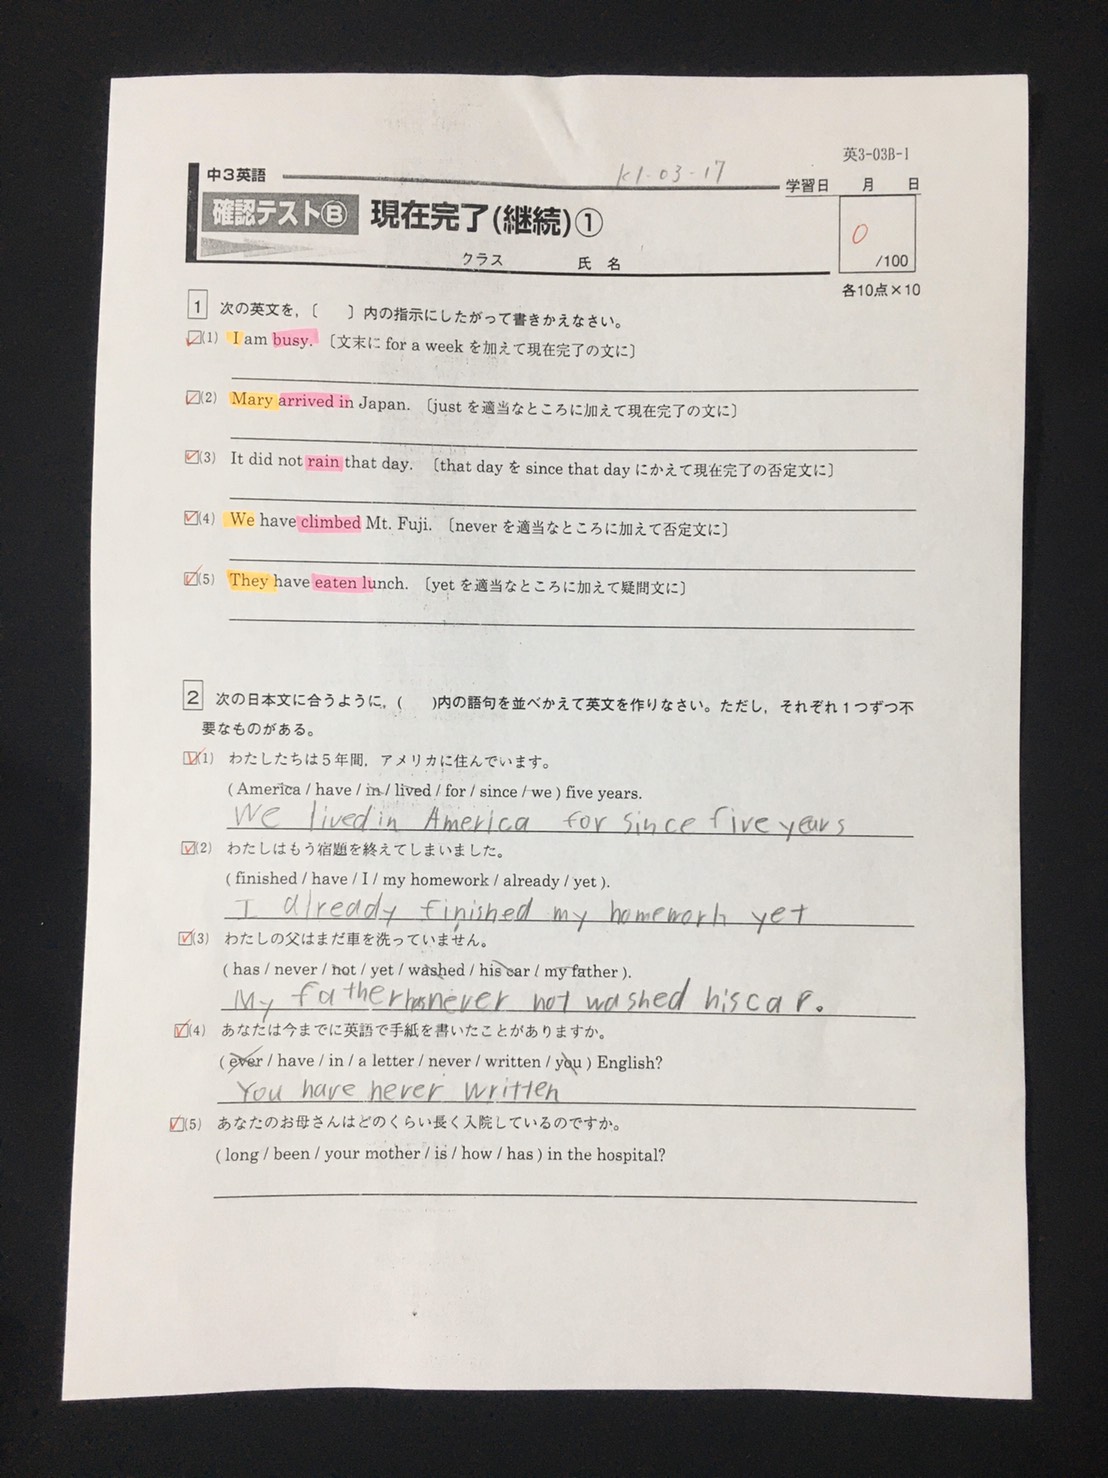 英3-03B-1
中3英語
K1-03-17
学習日 月 日
確認テストⒷ 現在完了(継続)①
0
/100
クラス 氏 名
各10点×10
1 次の英文を,〔 〕内の指示にしたがって書きかえなさい。
(1) I am busy. 〔文末に for a week を加えて現在完了の文に〕
(2) Mary arrived in Japan. 〔just を適当なところに加えて現在完了の文に〕
(3) It did not rain that day. 〔that day を since that day にかえて現在完了の否定文に〕
(4) We have climbed Mt. Fuji. 〔never を適当なところに加えて否定文に〕
(5) They have eaten lunch. 〔yet を適当なところに加えて疑問文に〕
2 次の日本文に合うように,( )内の語句を並べかえて英文を作りなさい。ただし,それぞれ1つずつ不
要なものがある。
(1) わたしたちは5年間,アメリカに住んでいます。
( America / have / in / lived / for / since / we ) five years.
We lived in America for since five years
(2) わたしはもう宿題を終えてしまいました。
( finished / have / I / my homework / already / yet ).
I already finished my homeworh yet
(3) わたしの父はまだ車を洗っていません。
( has / never / not / yet / washed / his car / my father ).
My father has never not washed his car.
(4) あなたは今までに英語で手紙を書いたことがありますか。
( ever / have / in / a letter / never / written / you ) English?
You have never written
(5) あなたのお母さんはどのくらい長く入院しているのですか。
( long / been / your mother / is / how / has ) in the hospital?